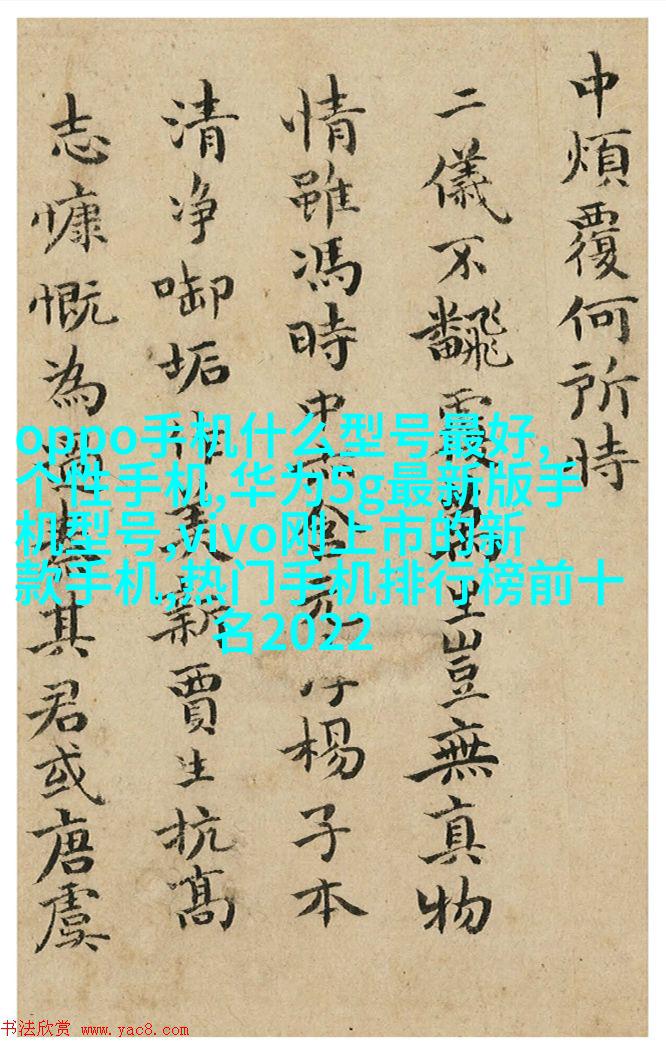 中煩覆何所恃
二儀不飜生豈無真物
情雖馮時中楊子本
清净啣垢美新賈生抗髙
志慷慨為其君或唐虞
oppo手机什么型号最好,
个性手机,华为5g最新版手
机型号,vivo刚上市的新
款手机,热门手机排行榜前十
名2022
书法欣赏 www.yac8.com